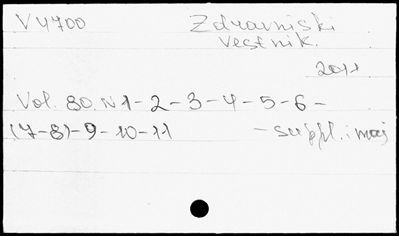 V4700 Zdravniski
vestnik.
2011
Vol. 80. N 1-2-3-4-5-6-
(7-8)-9-10-11 - suppl. : maj